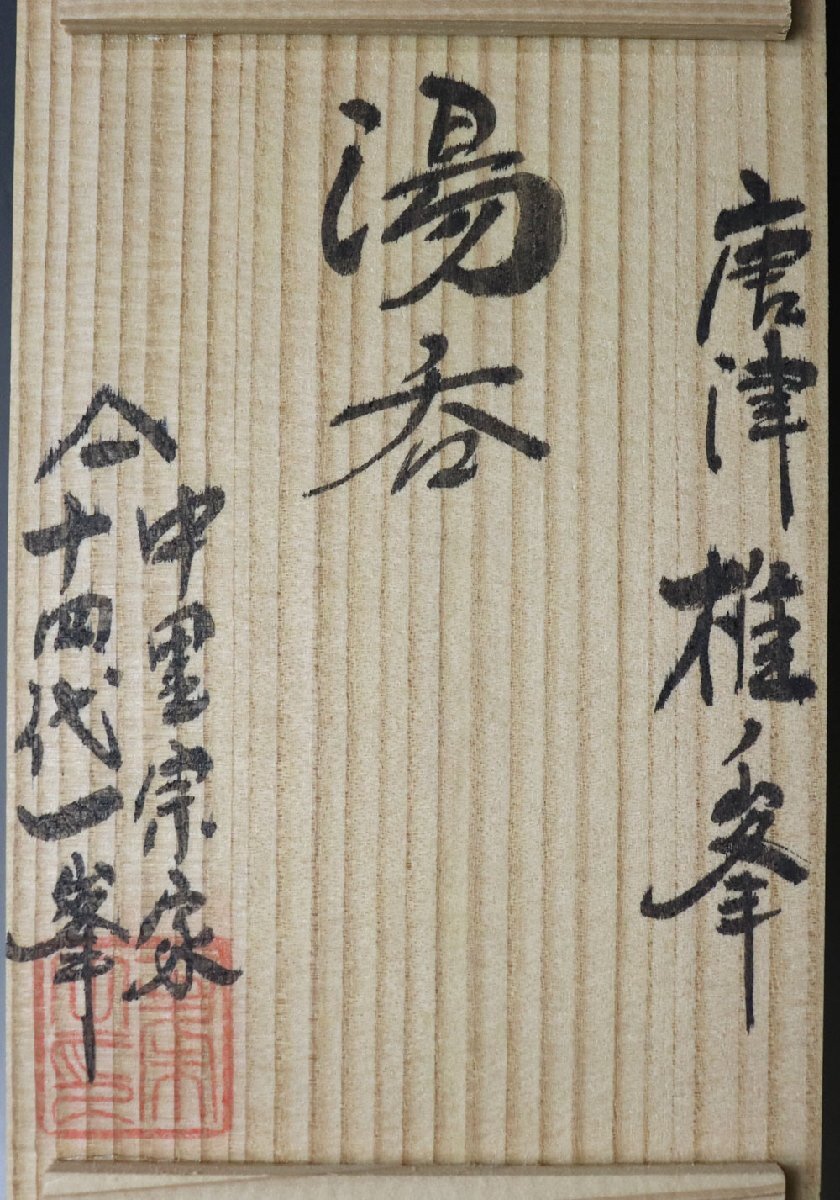 唐津 椎ノ峯
湯呑
𠆢二
中里宗家
十四代一峯